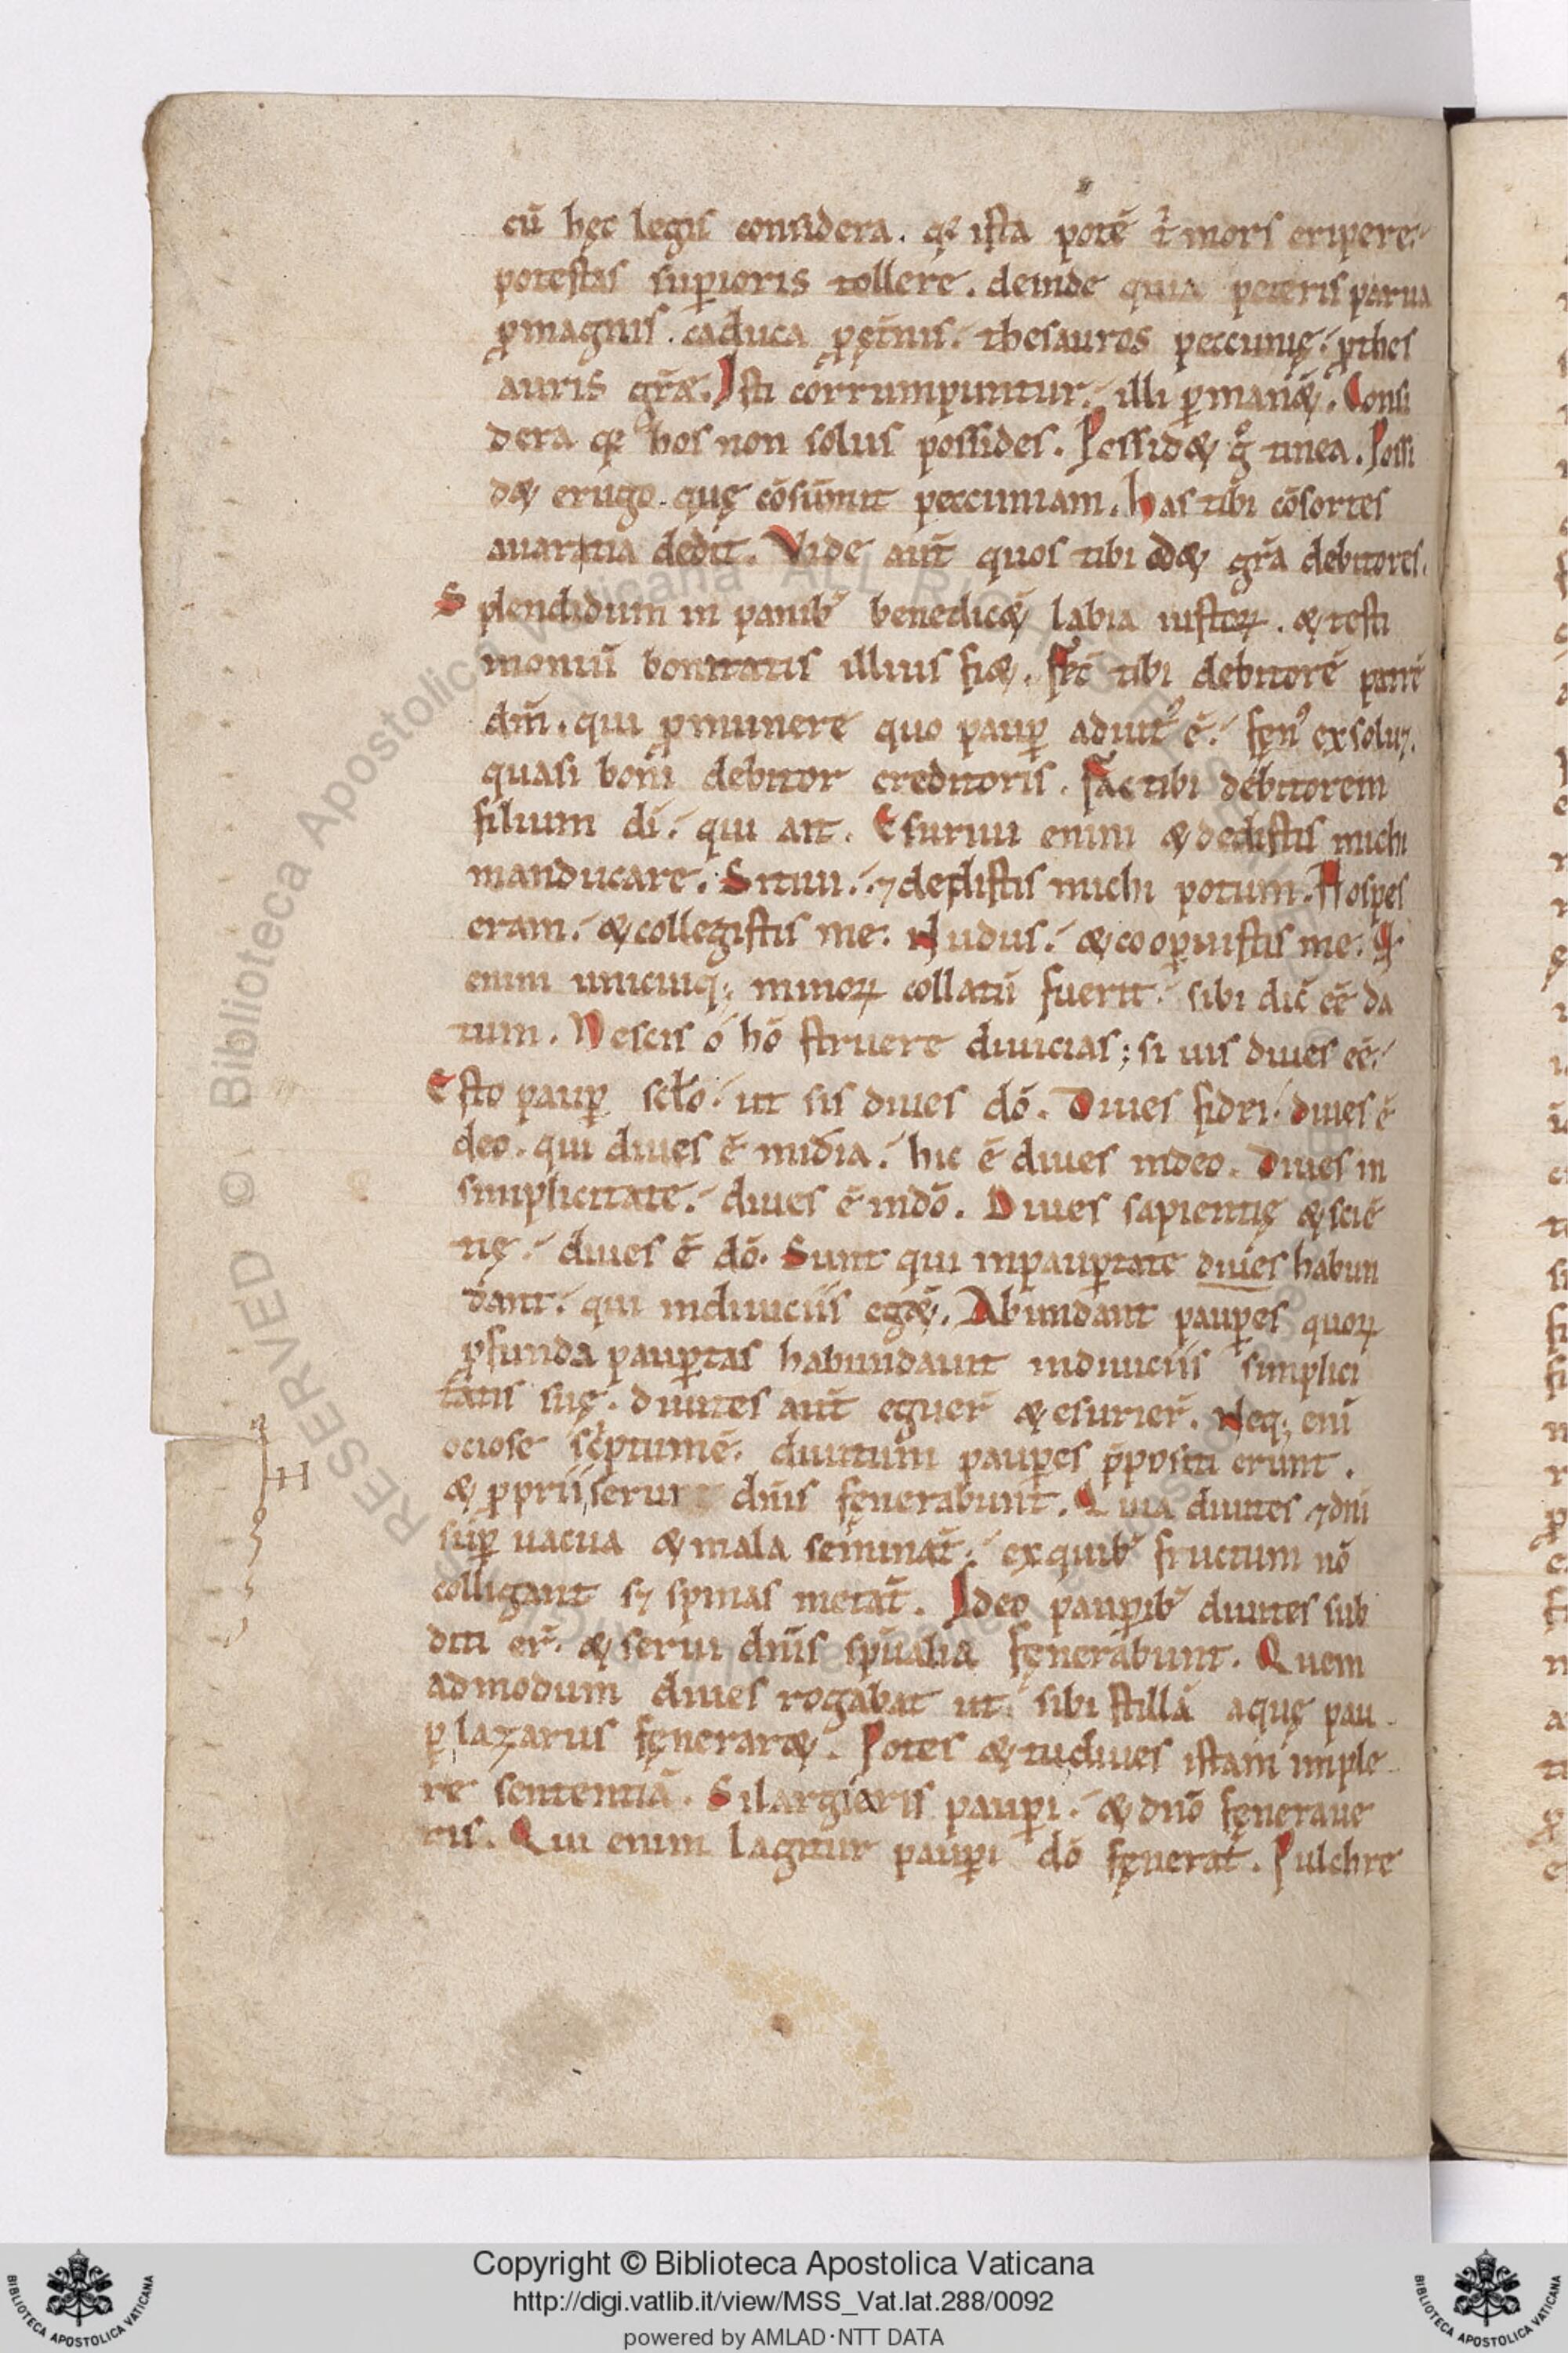 cū hęc legis considera. qꝛ ista potē & mors eripere.
potestas suꝑioris tollere. deinde quia peteris parua
ꝓmagnis. caduca ꝓ ęt̄nis. thesauros peccunię. ꝓthes
auris gr̄æ. Isti corrumpuntur. illi ꝑman&̄. Consi
dera qꝛ hos non solus possides. Possid& gͦ tinea. Possi
d& erugo. quę cōsūmit peccuniam. has tibi cōsortes
auaritia dedit. Vide aut̄ quos tibi dd& gr̄a debitores.
Splendidum in panibꝰ benedic&̄ labia iustoꝝ. & testi
moniū bonitatis illius fi&. fac̄ tibi debitorē patrē
dm̄. qui ꝓmunere quo pauꝑ adiutꝰ ē. fęnꝰ exsoluꝫ.
quasi boni debitor creditoris. fac tibi debitorem
filium dī. qui ait. Esuriui enim & dedistis michi
manducare. Sitiui. ⁊ dedistis michi potum. Hospes
eram. & collegistis me. Nudus. & cooꝑuistis me. Qꝰ
enim unicuiqꝫ minoꝝ collatū fuerit. sibi dic̄ eē da
tum. Nescis ó hō struere diuicias; si uis diues eē.
Esto pauꝑ scl̄o. ut sis diues dō. Diues fidei. diues ē
deo. qui diues ē mīdia. hic ē diues indeo. Diues in
simplicitate. diues ē indō. Diues sapientię & sciē
tię. diues ē dō. Sunt qui inpauꝑtate diues habun
dant. qui indiuiciis eg&̄. Abundant pauꝑes quoꝝ
ꝓfunda pauꝑtas habundauit indiuiciis simplici
tatis suę. diuites aut̄ eguer̄ & esurier̄. Neqꝫ eni
ociose sc̄ptumē. diuitum pauꝑes p̄positi erunt.
& ꝓprii serui dn̄is fęnerabunt. Quia diuites ⁊ dn̄i
suꝑ uacua & mala seminat̄. exquibꝰ fructum nō
colligant sꝫ spinas metāt. Ideo pauꝑibꝰ diuites sub
diti er̄. & serui dn̄is sp̄ualia fęnerabunt. Quem
admodum diues rogabat ut sibi stillā aquę pau
ꝑ lazarus fęnerar&. Potes & tu diues istam imple
re sententiā. Si largiaris pauꝑi. & dn̄o fęneraue
ris. Qui enim lagitur pauꝑi dō fęnerat̄. Pulchre
H
Copyright © Biblioteca Apostolica Vaticana
http://digi.vatlib.it/view/MSS_Vat.lat.288/0092
powered by AMLAD·NTT DATA
BIBLIOTECA APOSTOLICA VATICANA
BIBLIOTECA APOSTOLICA VATICANA